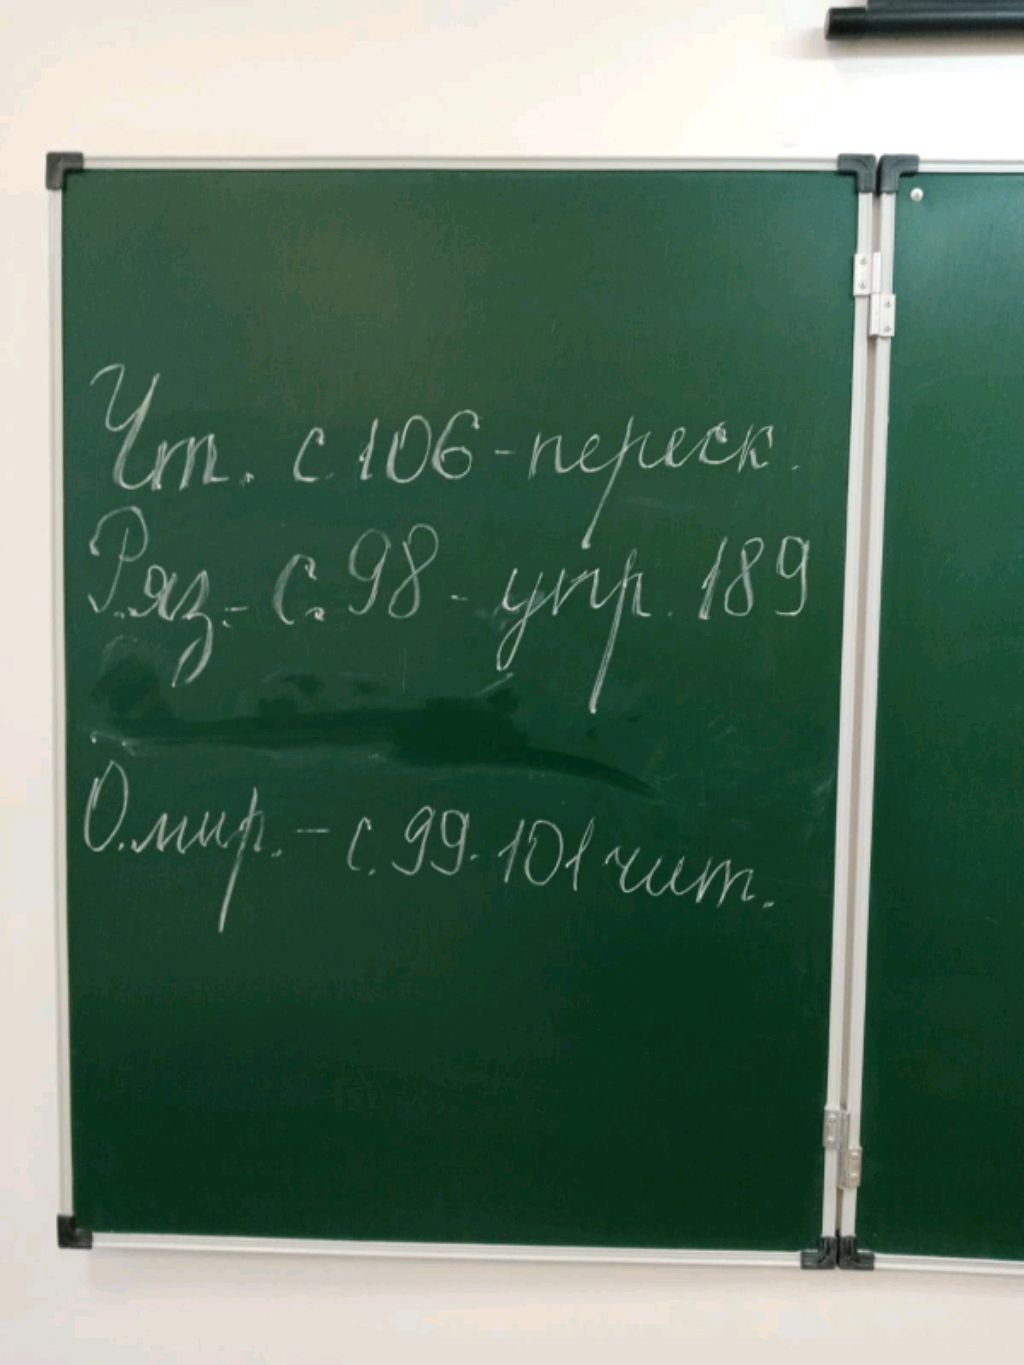 Чт. с. 106 - переск.
Р.яз. - с. 98 - упр. 189
О.мир. - с. 99-101 чит.